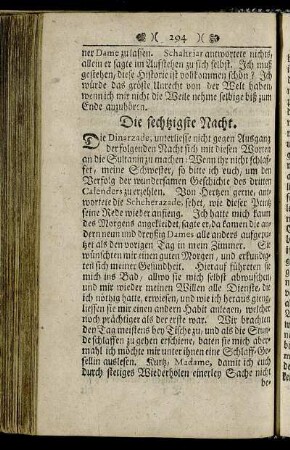 294
ner Dame zu lassen. Schahriar antwortete nichts,
allein er sagte im Aufstehen zu sich selbst. Ich muß
gestehen, diese Historie ist vollkommen schön? Ich
würde das gröste Unrecht von der Welt haben,
wenn ich mir nicht die Weile nehme selbige biß zum
Ende anzuhören.
Die sechtzigste Nacht.
Die Dinarzade, unterliesse nicht gegen Ausgang
der folgenden Nacht sich mit diesen Worten
an die Sultanin zu machen: Wenn ihr nicht schlaf-
fet, meine Schwester, so bitte ich euch, um den
Verfolg der wundersamen Geschichte des dritten
Calenders zu erzehlen. Von Hertzen gerne, ant-
wortete die Scheherazade, sehet, wie dieser Printz
seine Rede wieder anfieng. Ich hatte mich kaum
des Morgens angekleidet, sagte er, da kamen die an-
dern neun und dreyßig Dames alle anders aufgeputzt
als den vorigen Tag in mein Zimmer. Sie
wünschten mir einen guten Morgen, und erkundig-
ten sich meiner Gesundheit. Hierauf führeten sie
mich ins Bad, allwo sie mich selbst abwuschen,
und mir wieder meinen Willen alle Dienste, die
ich nöthig hatte, erwiesen, und wie ich heraus gieng,
liessen sie mir einen andern Habit anlegen, welcher
noch prächtiger als der erste war. Wir brachten
den Tag meistens bey Tische zu, und als die Stun-
de schlaffen zu gehen erschiene, baten sie mich aber-
mahl ich möchte mir unter ihnen eine Schlaff-Ge-
sellin auslesen. Kurtz, Madame, damit ich euch
durch stetiges Wiederholen einerley Sache nicht
be-